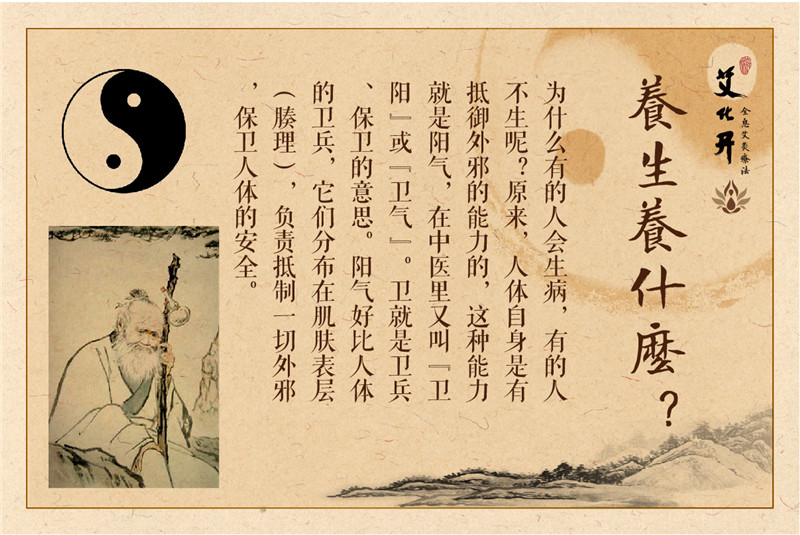 艾化开
全息艾灸療法
養生養什麼？
为什么有的人会生病，有的人
不生呢？原来，人体自身是有
抵御外邪的能力的，这种能力
就是阳气，在中医里又叫『卫
阳』或『卫气』。卫就是卫兵
、保卫的意思。阳气好比人体
的卫兵，它们分布在肌肤表层
（腠理），负责抵制一切外邪
，保卫人体的安全。